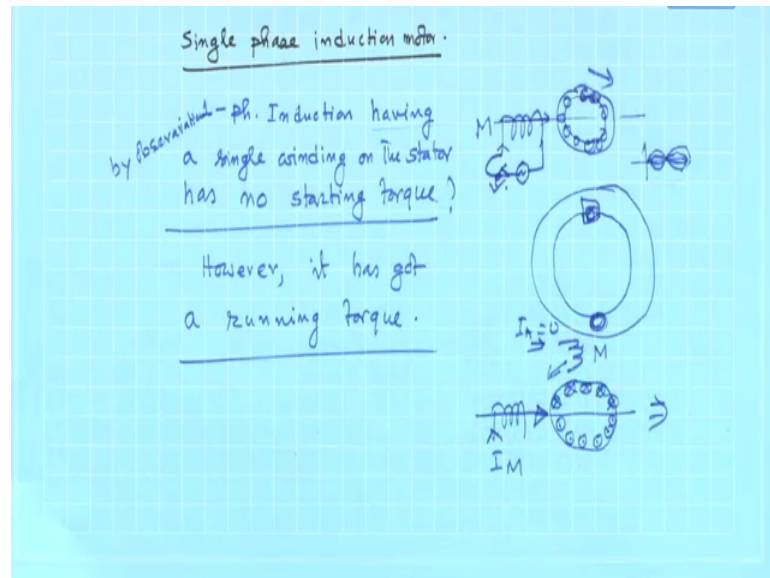 Single phase induction motor.
by observation - ph. Induction having
a single winding on the stator
has no starting torque?
However, it has got
a running torque.
M
I_A = 0
M
I_M